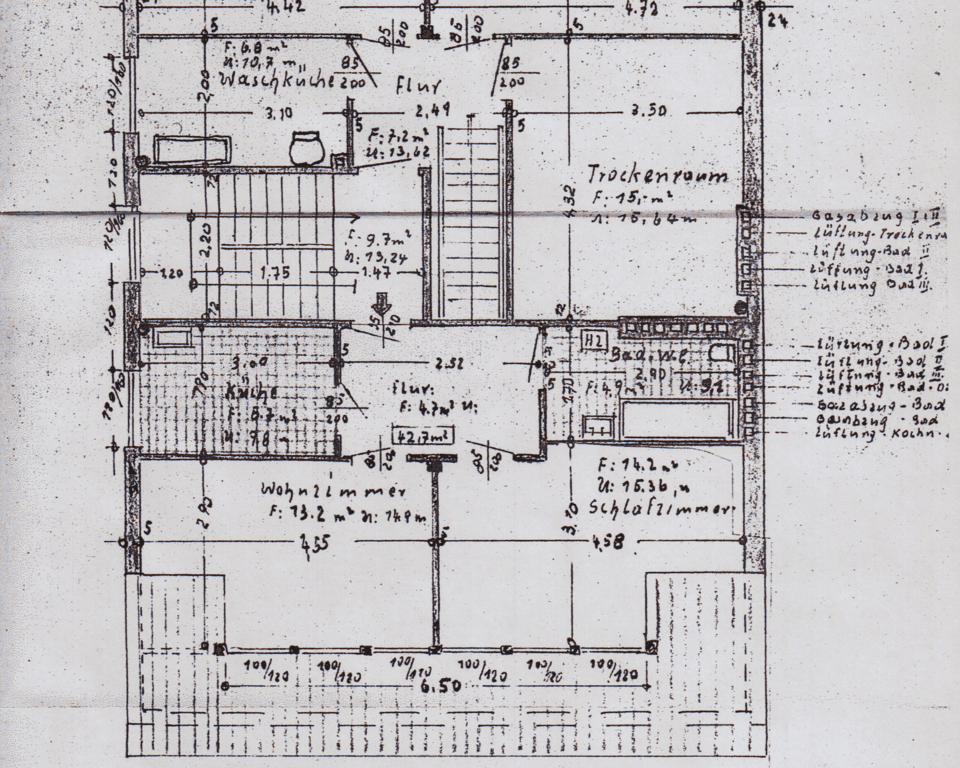 4.42
4.72
24
5
5
85
200
85
200
F: 6.8 m²
U: 10,7 m
Waschküche
85
200
Flur
85
200
2,00
120/100
3.10
2,49
3.50
5
5
F: 7,2 m²
U: 13,62
120
12
Trockenraum
F: 15,- m²
U: 15,64 m
4,32
Gasabzug I. II
Lüftung-Trockenra
Lüftung-Bad II
Lüftung-Bad I.
Lüftung Bad III.
2,20
F: 9.7m²
U: 13,24
120
1.75
1.47
120
12
12
3.00
5
2.52
H2
Bad. WC
2.90
F: 4,9
U: 9,1
1,70
Küche
F: 5,7 m²
U: 9,8 m
85
200
Flur:
F: 4.7m² U:
42,7m²
Lüftung-Bad I
Lüftung-Bad II
Lüftung-Bad III
Lüftung-Bad
Gasabzug-Bad
Lüftung-Kochn.
Wohnzimmer
F: 13.2 m² U: 14,9 m
F: 14.2 m²
U: 15.36 m
Schlafzimmer
2.90
3.10
5
4,55
4,58
100/120
100/120
100/120
100/120
100/120
100/120
6.50